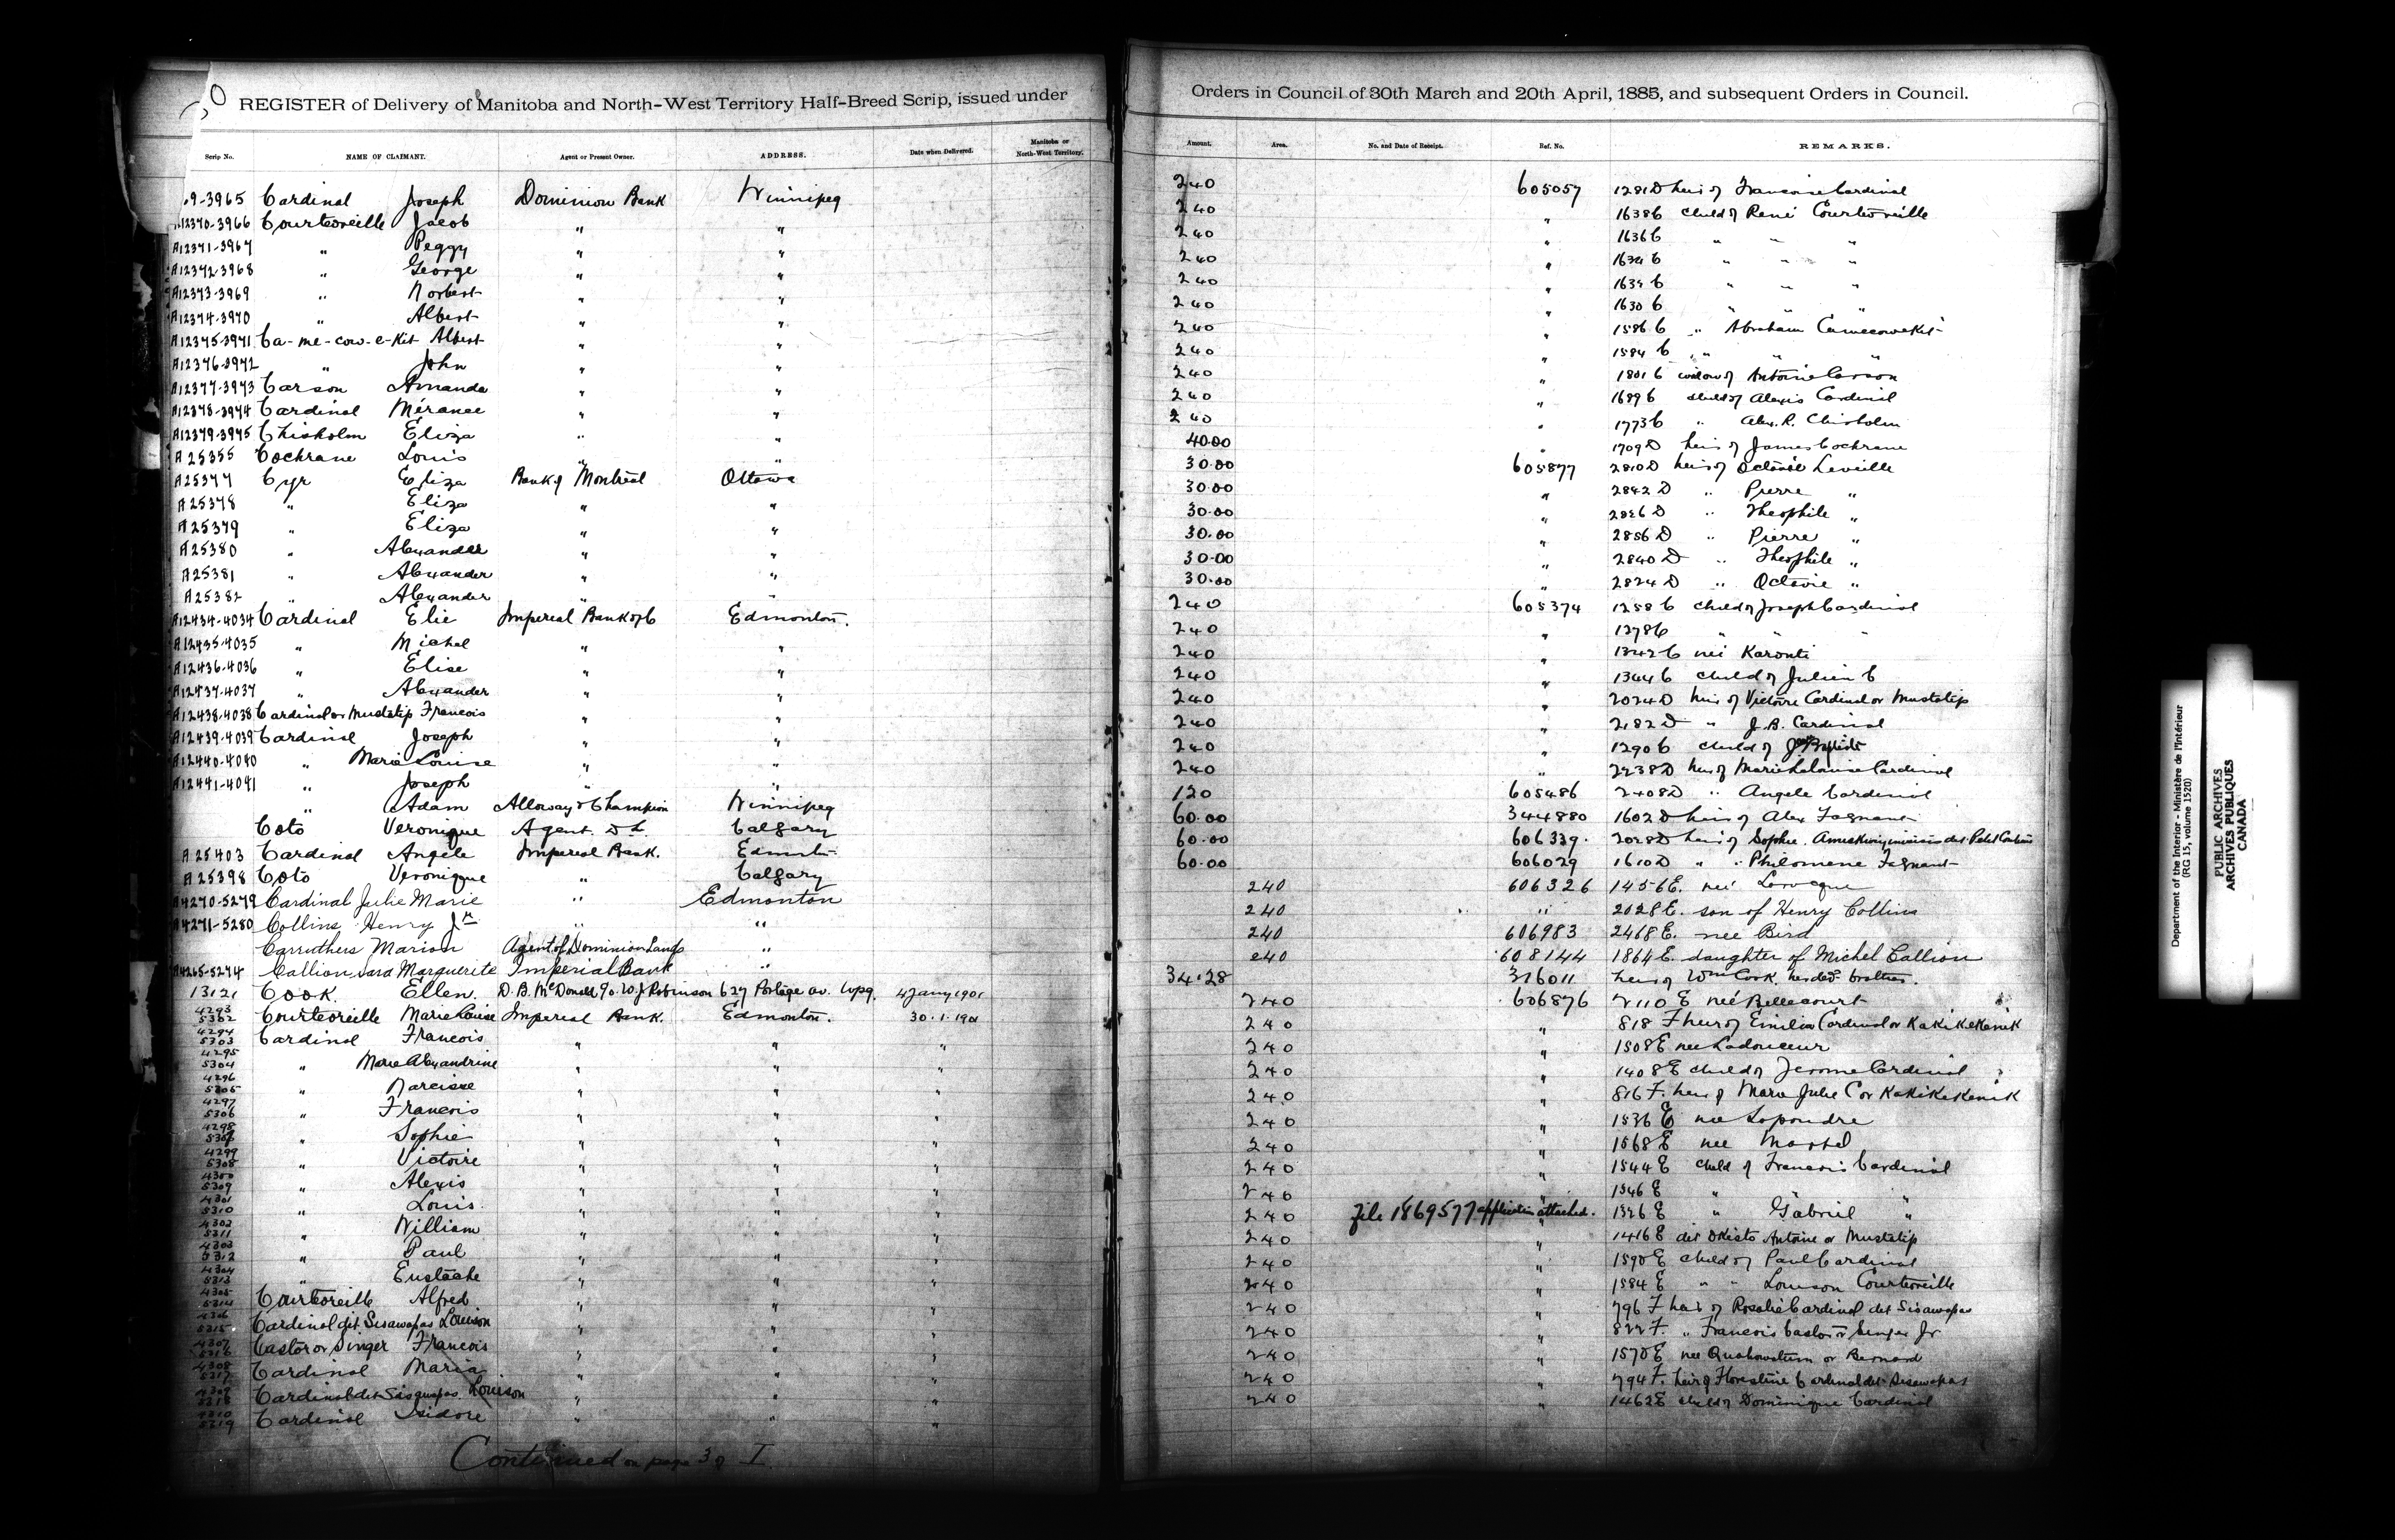 REGISTER of Delivery of Manitoba and North-West Territory Half-Breed Scrip, issued under Orders in Council of 30th March and 20th April, 1885, and subsequent Orders in Council.
Scrip No. NAME OF CLAIMANT. Agent or Present Owner. ADDRESS. Date when Delivered. Manitoba or North-West Territory. Amount. Area. No. and Date of Receipt. Ref. No. REMARKS.
9-3965 Cardinal Joseph Dominion Bank Winnipeg 240 605057 1281D heir of Francoise Cardinal
A12370-3966 Courteoreille Jacob " " 240 " 1638C child of René Courteoreille
A12371-3967 " Peggy " " 240 " 1636C " " "
A12372-3968 " George " " 240 " 1634C " " "
A12373-3969 " Norbert " " 240 " " " "
A12374-3970 " Albert " " 240 " 1630C " "
A12375-3971 Ca-me-cow-e-Kit Albert " " 240 " 1586C " Abraham Camecowekit
A12376-3972 " John " " 240 " 1584C " " "
A12377-3973 Carson Amanda " " 240 " 1801C widow of Antoine Carson
A12378-3974 Cardinal Méranee " " 240 " 1689C child of Alexis Cardinal
A12379-3975 Chisholm Eliza " " 240 " 1773C " Alex. R. Chisholm
A25355 Cochrane Louis " " 40.00 " 1709D heir of James Cochrane
A25377 Cyr Eliza Bank of Montreal Ottawa 30.00 605877 2810D heir of Octavie Leveille
A25378 " Eliza " " 30.00 " 2842D " Pierre "
A25379 " Eliza " " 30.00 " 2826D " Theophile "
A25380 " Alexander " " 30.00 " 2856D " Pierre "
A25381 " Alexander " " 30.00 " 2840D " Theophile "
A25382 " Alexander " " 30.00 " 2824D " Octavie "
A12434-4034 Cardinal Elie Imperial Bank of C Edmonton. 240 605374 1258C child of Joseph Cardinal
A12435-4035 " Michel " " 240 " 1378C " " "
A12436-4036 " Elise " " 240 " 1342C neé Karonti
A12437-4037 " Alexander " " 240 " 1344C child of Julien C
A12438-4038 Cardinal or Mustatip Francois " " 240 " 2024D heir of Victoire Cardinal or Mustatip
A12439-4039 Cardinal Joseph " " 240 " 2182D " J. B. Cardinal
A12440-4040 " Marie Louise " " 240 " 1290C child of Jean Baptiste
A12441-4041 " Joseph " " 240 " 2238D heir of Marie Lalouise Cardinal
" Adam Alloway & Champion Winnipeg 120 605486 2408D " Angele Cardinal
Coto Veronique Agent D. L. Calgary 60.00 344880 1602D heir of Alex Fagnant
A25403 Cardinal Angele Imperial Bank. Edmonton 60.00 606339. 2028D heir of Sophie
A25398 Coto Veronique " Calgary 60.00 606029 1610D " " Philomene Fagnant
A4270-5279 Cardinal Julie Marie " Edmonton 240 606326 1456E. neé Larocque
A4271-5280 Collins Henry Jr " " 240 " 2028E. son of Henry Collins
Carruthers Marion Agent of Dominion Lands " 240 606983 2468E. nee Bird
A4265-5274 Callion Sara Marguerite Imperial Bank " 240 608144 1864E. daughter of Michel Callion
13121 Cook. Ellen. D. B. McDonald c/o W. J. Robinson 627 Portage av. Wpg. 4 Jany 1901 34.28 316011 heir of Wm Cook, her dec'd brother.
4293 5302 Courteoreille Marie Louise Imperial Bank. Edmonton. 30.1.1901 240 606876 2110E neé Bellecourt
4294 5303 Cardinal Francois " " " 240 " 818F heir of Emilia Cardinal or Kakikekanik
4295 5304 " Marie Alexandrine " " " 240 " 1508E nee Ladouceur
4296 5305 " Narcisse " " " 240 " 1408E child of Jerome Cardinal
4297 5306 " Francois " " " 240 " 816F. heir of Marie Julie C or Kakikekanik
4298 5307 " Sophie " " " 240 " 1536E nee Lapoudre
4299 5308 " Victoire " " " 240 " 1568E nee Martel
4300 5309 " Alexis " " " 240 " 1544E child of Francois Cardinal
4301 5310 " Louis " " " 240 " 1546E " " "
4302 5311 " William " " " 240 file 1869577 application attached. " 1326E " Gabriel "
4303 5312 " Paul " " " 240 " 1416E dit Okisto Antoine or Mustatip
4304 5313 " Eustache " " " 240 " 1590E child of Paul Cardinal
4305 5314 Courteoreille Alfred " " " 240 " 1584E " " Louison Courteoreille
4306 5315 Cardinal dit Sisawapas Louison " " " 240 " 796F heir of Rosalie Cardinal dit Sisawapas
4307 5316 Castor or Singer Francois " " " 240 " 822F. " Francois Castor or Singer Jr
4308 5317 Cardinal Maria " " " 240 " 1570E nee Quahowatum or Bernard
4309 5318 Cardinal dit Sisawapas Louison " " " 240 " 794F. heir of Florestine Cardinal dit Sisawapas
4310 5319 Cardinal Isidore " " " 240 " 1462E child of Dominique Cardinal
Continued on page 3 of I
Department of the Interior - Ministère de l'Intérieur
(RG 15, volume 1520)
PUBLIC ARCHIVES
ARCHIVES PUBLIQUES
CANADA